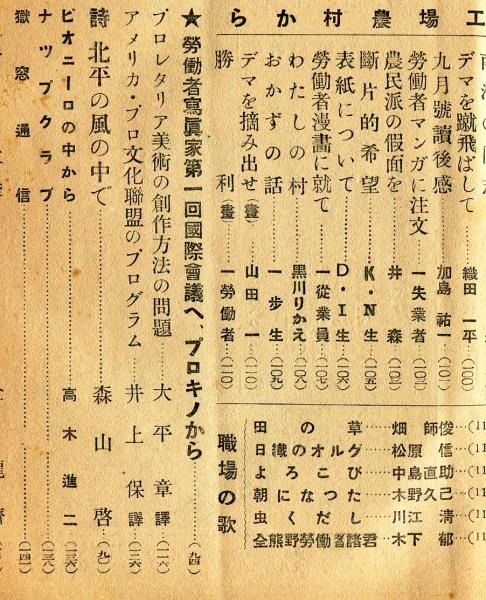 工場農村から
デマを蹴飛ばして……織田一平…(一〇〇)
九月號讀後感……加島祐一…(一〇二)
勞働者マンガに注文……一失業者…(一〇三)
農民派の假面を……井森…(一〇三)
斷片的希望……K・N生…(一〇五)
表紙について……D・I生…(一〇六)
勞働者漫畫に就て……一從業員…(一〇七)
わたしの村……黑川りかえ…(一〇八)
おかずの話……一步生…(一〇九)
デマを摘み出せ(畫)……山田一…(一一〇)
勝利(畫)……一勞働者…(一一〇)
職場の歌
田の草……畑師俊
日識のオルグ……松原信
よろこび……中島直助
朝になつた……木野久己
虫くだし……川江淸
全熊野勞働者諸君…木下郁
★勞働者寫眞家第一回國際會議へ、プロキノから……(九四)
プロレタリア美術の創作方法の問題……大平章譯…(一一六)
アメリカ・プロ文化聯盟のプログラム……井上保譯…(一二六)
詩 北平の風の中で……森山啓…(九〇)
ピオニーロの中から……高木進二…(一三六)
ナツプクラブ……(一三八)
獄窓通信……(一四一)